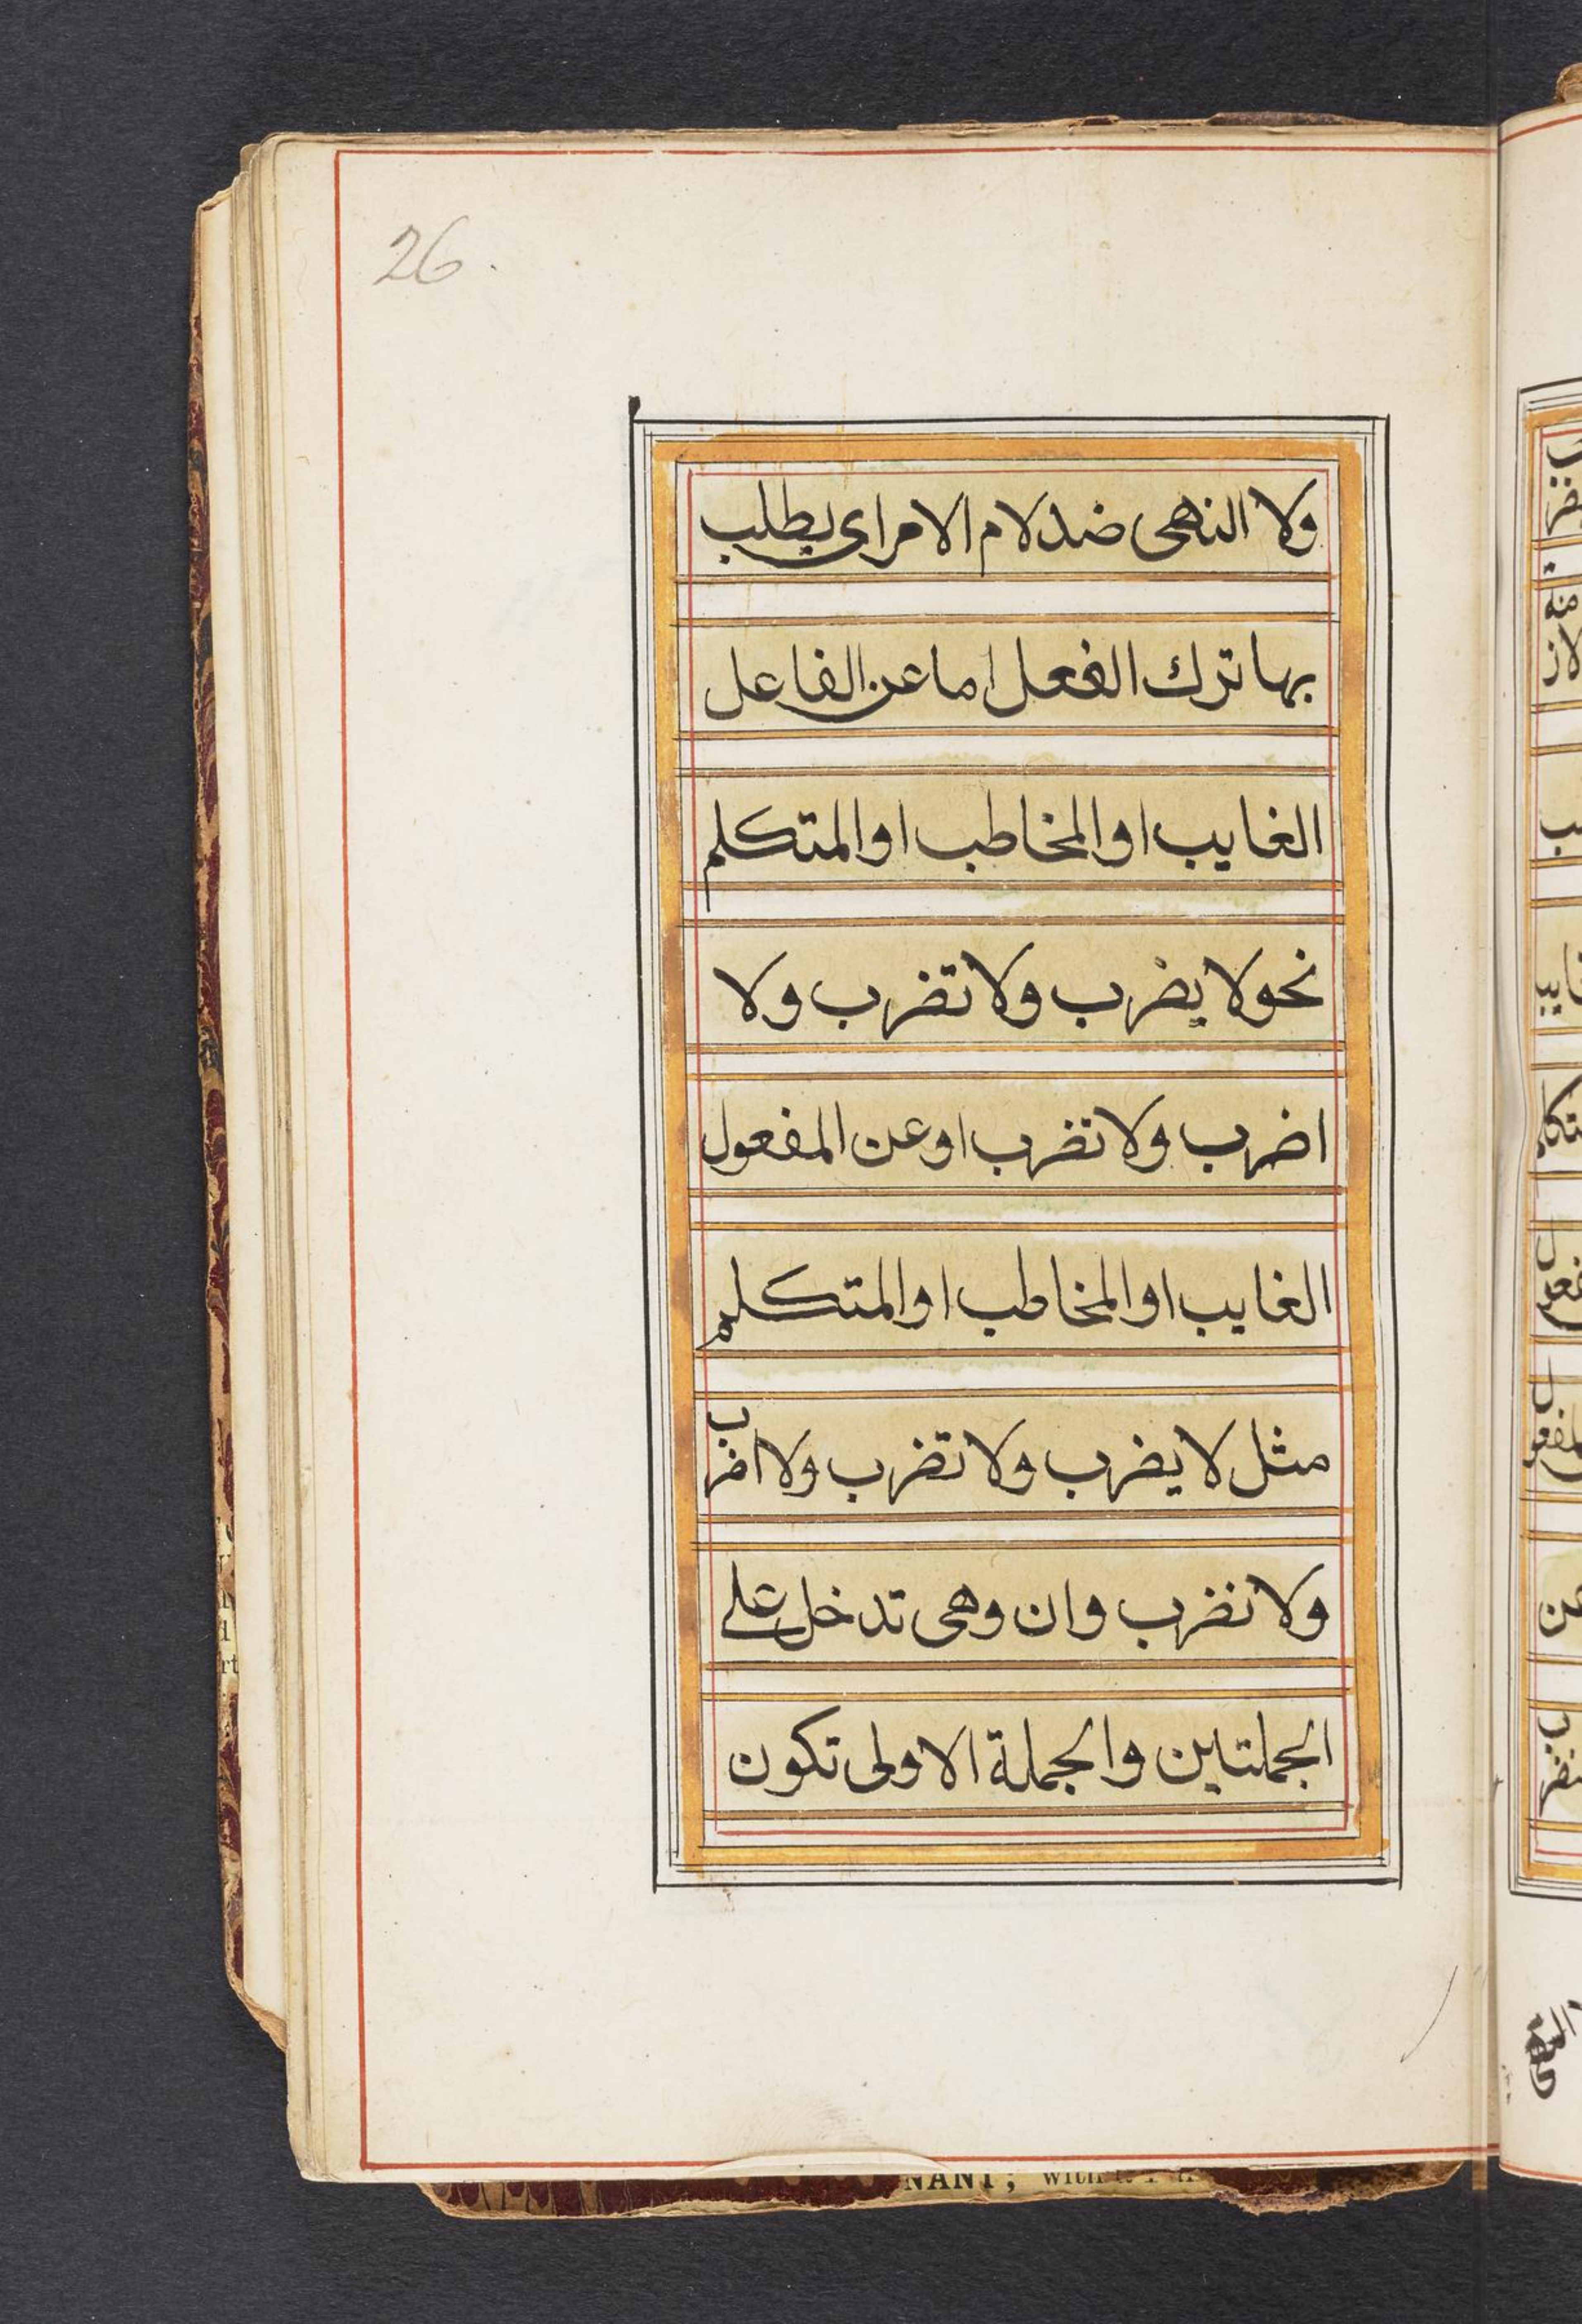 26.
ولا النهى ضد لام الامر اى يطلب
بها ترك الفعل اما عن الفاعل
الغايب او المخاطب او المتكلم
نحو لا يضرب ولا تضرب ولا
اضرب ولا نضرب او عن المفعول
الغايب او المخاطب او المتكلم
مثل لا يضرب ولا تضرب ولا اضرب
ولا نضرب وان وهى تدخل على
الجملتين والجملة الاولى تكون
NANT; with